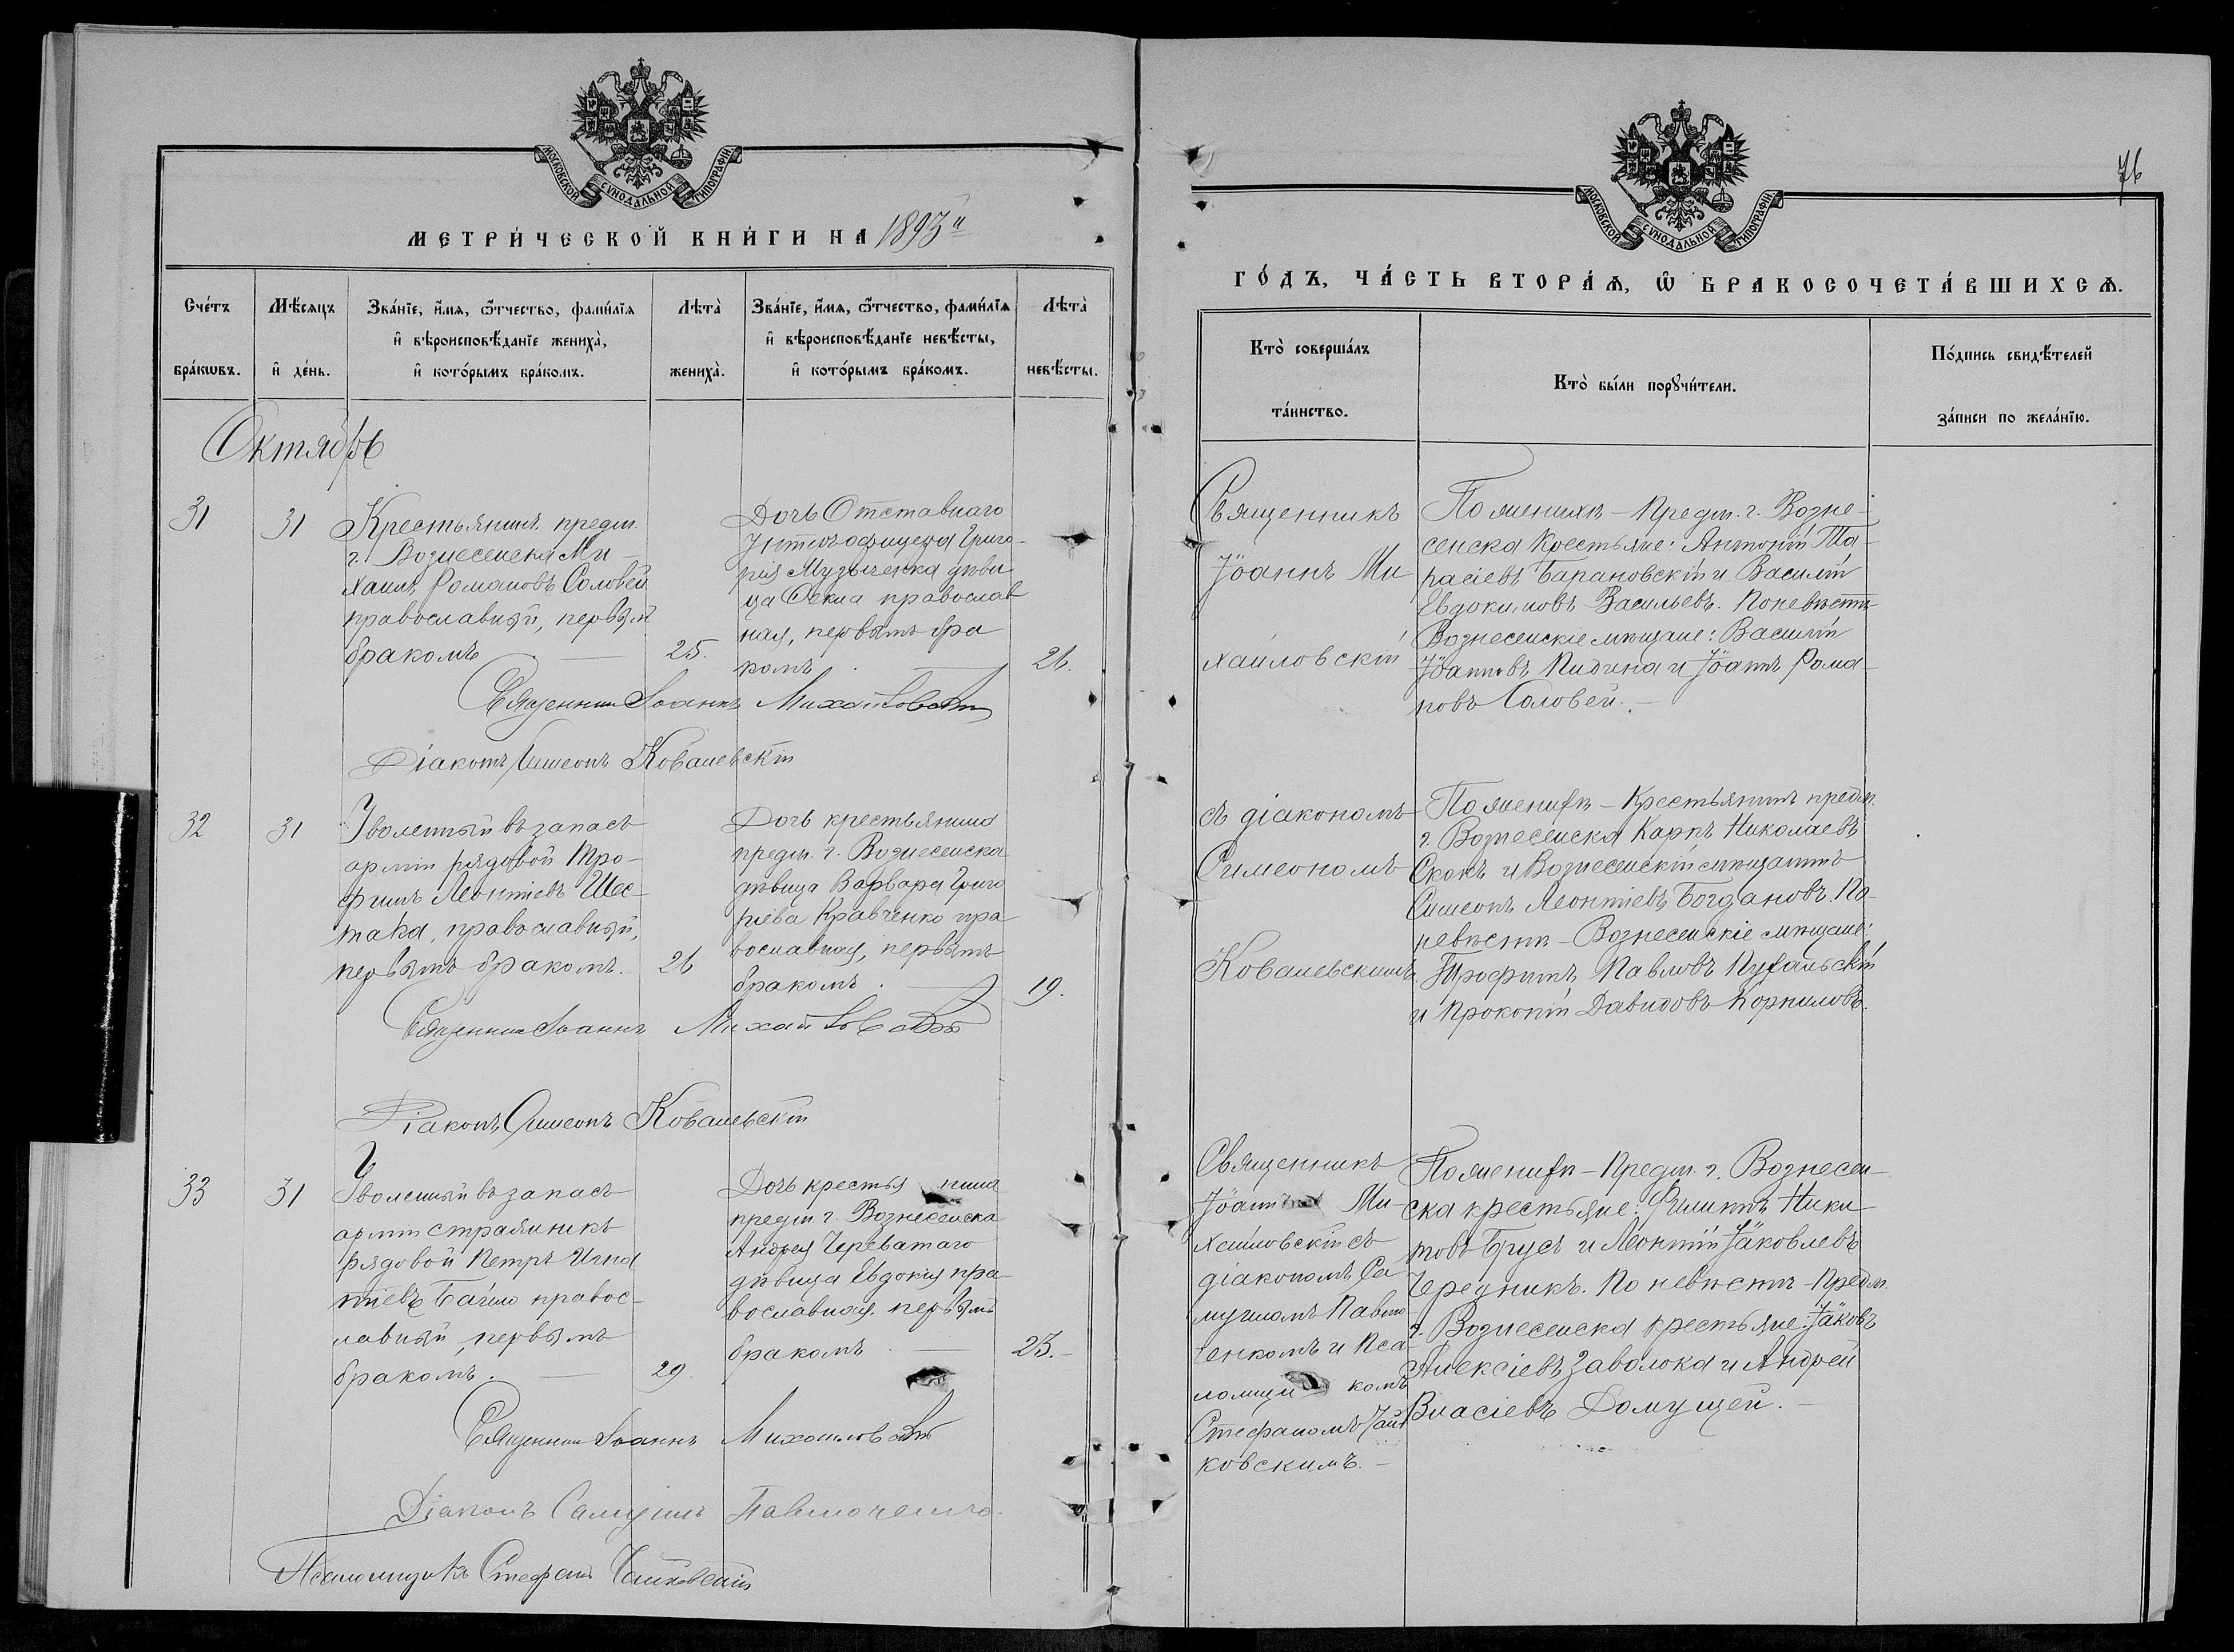 МОСКОВСКОЙ СѴНОДАЛЬНОЙ ТИПОГРАФІИ.
МЕТРИ́ЧЕСКОЙ КНИ́ГИ НА 1893й
Сче́тъ бра́кѡвъ.
Мѣ́сяцъ и҆ де́нь.
Зва́нїе, и҆́мѧ, ѻ҆́тчество, фами́лїѧ
и҆ вѣроисповѣ́данїе жениха̀,
и҆ кото́рымъ бра́комъ.
Лѣта̀ жениха̀.
Зва́нїе, и҆́мѧ, ѻ҆́тчество, фами́лїѧ
и҆ вѣроисповѣ́данїе невѣ́сты,
и҆ кото́рымъ бра́комъ.
Лѣта̀ невѣ́сты.
Октябрь
31
31
Крестьянинъ предм.
г. Вознесенска Ми-
хаилъ Романовъ Соловей
православный, первымъ
бракомъ. —
25.
Дочь Отставнаго
Унтеръ офицера Григо-
рія Музыченка дѣви
ца Ѳекла православ
ная, первымъ бра
комъ. —
26.
Священникъ Іоаннъ Михайловскій
Діаконъ Симеонъ Ковалевскій
32
31
Уволенный въ запасъ
арміи рядовой Тро-
фимъ Леонтіевъ Шес-
така, православный,
первымъ бракомъ.
26
Дочь крестьянина
предм. г. Вознесенска
дѣвица Варвара Григо
ріева Кравченко пра
вославная, первымъ
бракомъ. —
19.
Священникъ Іоаннъ Михайловскій
Діаконъ Симеонъ Ковалевскій
33
31
Уволенный въ запасъ
арміи стражникъ
рядовой Петръ Игна
тіевъ правос-
лавный, первымъ
бракомъ. —
29.
Дочь крестьянина
предм. г. Вознесенска
Андрея Череватаго
дѣвица Евдокія пра-
вославная, первымъ
бракомъ. —
23.-
Священникъ Іоаннъ Михайловскій
Діаконъ Самуилъ Павлюченко.
Псаломщикъ Стефанъ Чайковскій
76
МОСКОВСКОЙ СѴНОДАЛЬНОЙ ТИПОГРАФІИ.
ГО́ДЪ, ЧА́СТЬ ВТОРА́Ѧ, Ѽ БРАКОСОЧЕТА́ВШИХСѦ.
Кто̀ соверша́лъ
та́инство.
Кто̀ бы́ли порꙋчи́тели.
По́дпись свидѣ́телей
за́писи по жела́нїю.
Священникъ
Іоаннъ Ми
хайловскій
По женихѣ - Предм. г. Возне-
сенска Крестьяне: Антоній Та-
расіевъ Барановскій и Василій
Евдокимовъ Васильевъ. По невѣстѣ-
Вознесенскіе мѣщане: Василій
Іоанновъ и Іоаннъ Рома-
новъ Соловей. -
съ діакономъ
Симеономъ
Ковалевскимъ
По женихѣ - Крестьянинъ предм.
г. Вознесенска Карпъ Николаевъ
и Вознесенскій мѣщанинъ
Симеонъ Леонтіевъ Богдановъ. По
невѣстѣ - Вознесенскіе мѣщане:
Трофимъ Павловъ
и Прокопій Давидовъ Корниловъ.
Священникъ
Іоаннъ Ми-
хайловскій съ
діакономъ Са
муиломъ Павлю-
ченкомъ и Пса-
ломщикомъ
Стефаномъ Чай
ковскимъ. -
По женихѣ - Предм. г. Вознесен-
ска крестьяне: Филиппъ Ники
товъ Брусъ и Леонтій Іаковлевъ
Чередникъ. По невѣстѣ - Предм.
г. Вознесенска крестьяне: Іаковъ
Алексіевъ Заволока и Андрей
Власіевъ Домущей. -